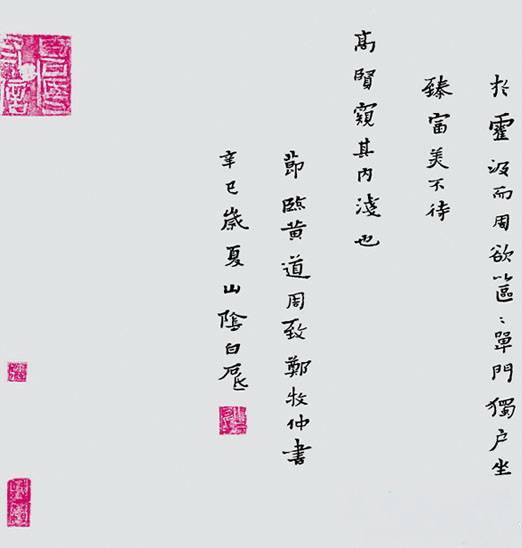 於霍汲而周欲以區〻單門獨户坐
臻富美不待
高賢窺其内淺也
節臨黄道周致鄭牧仲書
辛巳歲夏山陰白砥